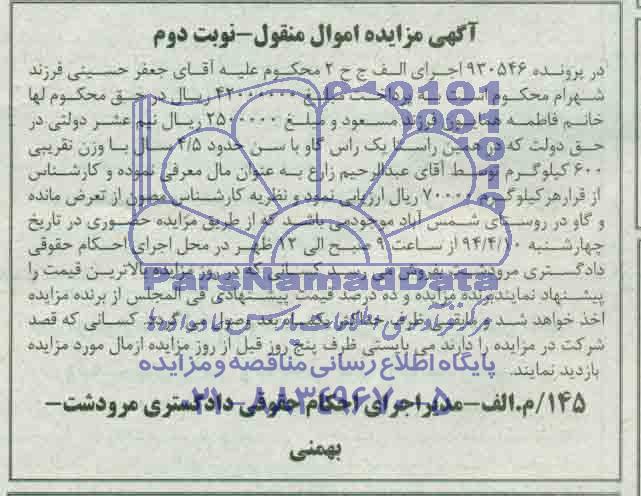 آگهی مزایده اموال منقول-نوبت دوم
در پرونده ۹۳۰۵۴۶ اجرای الف ج ح ۲ محکوم علیه آقای جعفر حسینی فرزند
شهرام محکوم است به پرداخت مبلغ ریال در حق محکوم لها
خانم فاطمه همایون فرزند مسعود و مبلغ ۲۵۰۰۰۰۰ ریال نیم عشر دولتی در
حق دولت که در همین راستا یک راس گاو با سن حدود ۴/۵ سال با وزن تقریبی
۶۰۰ کیلوگرم توسط آقای عبدالرحیم زارع به عنوان مال معرفی نموده و کارشناس
از قرار هر کیلوگرم ریال ارزیابی نمود و نظریه کارشناس مصون از تعرض مانده
و گاو در روستای شمس آباد موجود می باشد که از طریق مزایده حضوری در تاریخ
چهارشنبه ۹۴/۴/۱۰ از ساعت ۹ صبح الی ۱۲ ظهر در محل اجرای احکام حقوقی
دادگستری مرودشت بفروش می رسد کسانی که در روز مزایده بالاترین قیمت را
پیشنهاد نمایند برنده مزایده و ده درصد قیمت پیشنهادی فی المجلس از برنده مزایده
اخذ خواهد شد و مابقی ظرف حداکثر یکماه بعد وصول می گردد. کسانی که قصد
شرکت در مزایده را دارند می بایستی ظرف پنج روز قبل از روز مزایده ازمال مورد مزایده
بازدید نمایند.
۱۴۵/م.الف-مدیر اجرای احکام حقوقی دادگستری مرودشت-
بهمنی
ParsNamadData
پایگاه اطلاع رسانی مناقصه و مزایده
۰۲۱-۸۸۳۴۹۶۷۰-۵